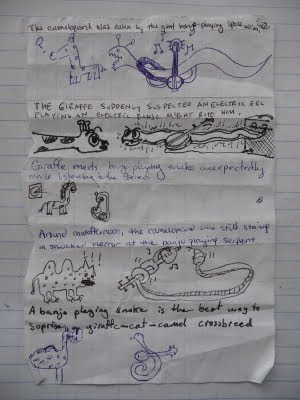 The camelopard was eaten by the giant banjo-playing
THE GIRAFFE SUDDENLY SUSPECTED AN ELECTRIC EEL
PLAYING AN ELECTRIC BANJO MIGHT BITE HIM.
Giraffe meets banjo-playing snake unexpectedly
while listening to the
Around midafternoon, the camelopard was still staring
in horror at the banjo playing serpent
A banjo playing snake is the best way to
giraffe-cat-camel crossbreed